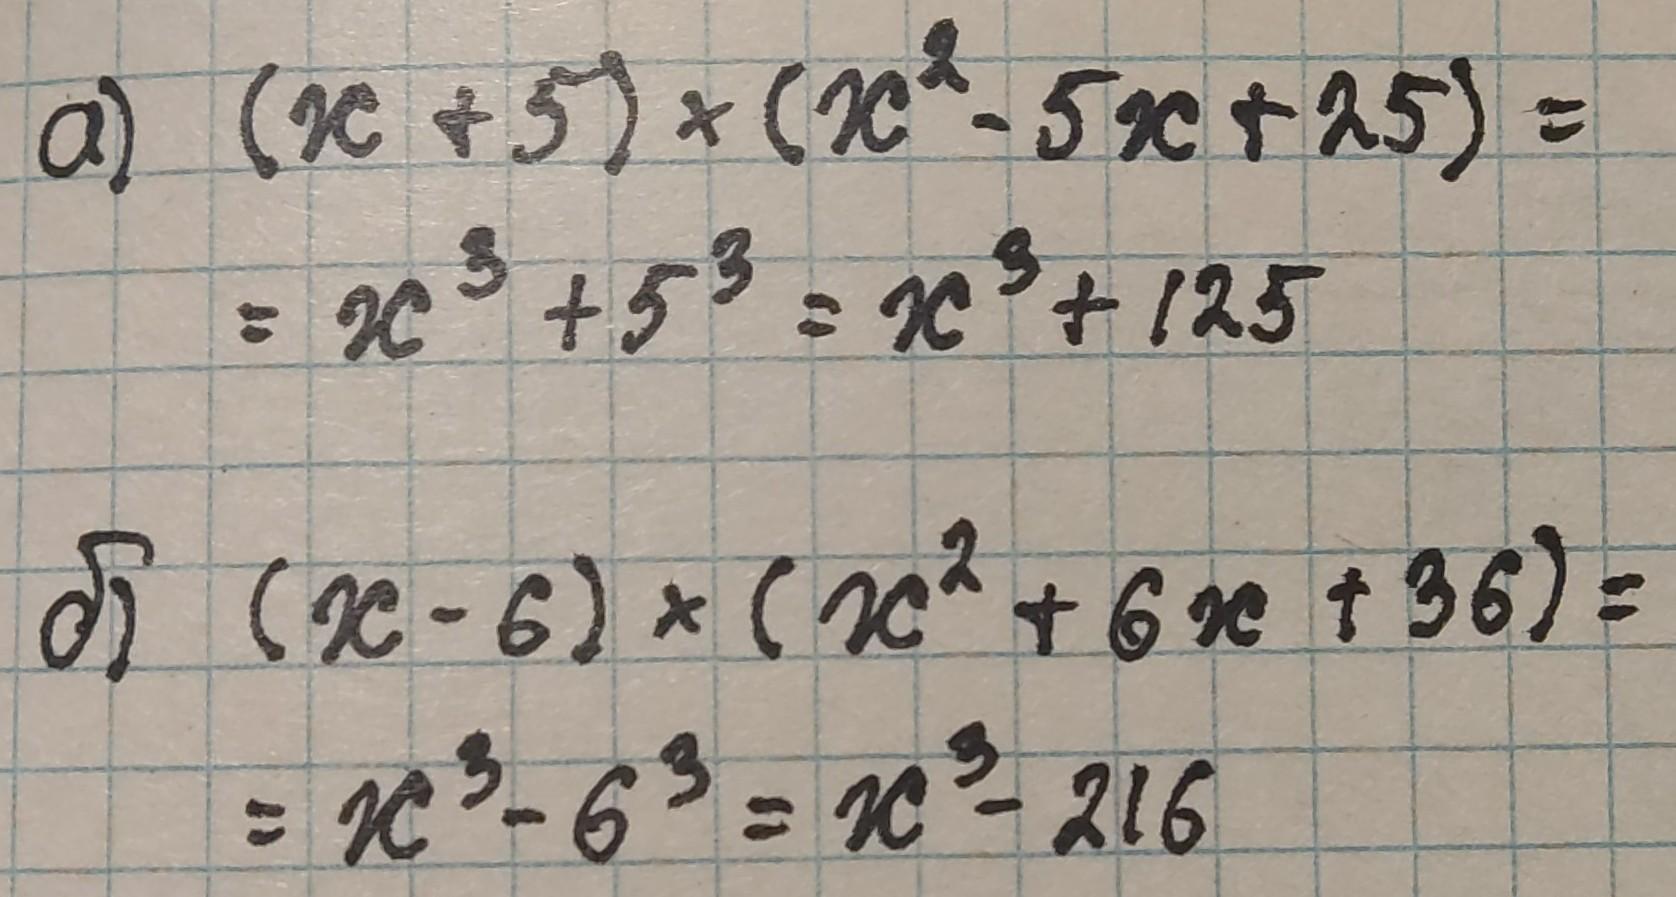 а) (x + 5) × (x² - 5x + 25) =
= x³ + 5³ = x³ + 125
б) (x - 6) × (x² + 6x + 36) =
= x³ - 6³ = x³ - 216